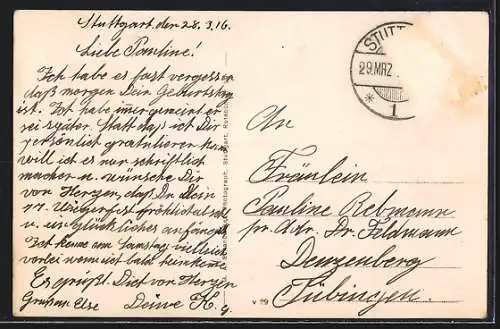 Stuttgart den 28.3.16.
Liebe Pauline!
Ich habe es fast vergessen
daß morgen Dein Geburtstag
ist. Ich habe immer gemeint er
sei später. Statt daß ich Dir
persönlich gratulieren kann
will ich es nur schriftlich
machen u. wünsche Dir
von Herzen, daß Du Dein
17. Wiegenfest fröhlich
u. ein Glückliches
Ich komme am Samstag vielleicht
vorbei wenn
Es grüßt Dich von Herzen
Else Deine K.
STUTT
29.MRZ
* 1
An
Fräulein
Pauline Rebmann
pr. Adr. Dr. Feldmann
Denzenberg
Tübingen.
v 29